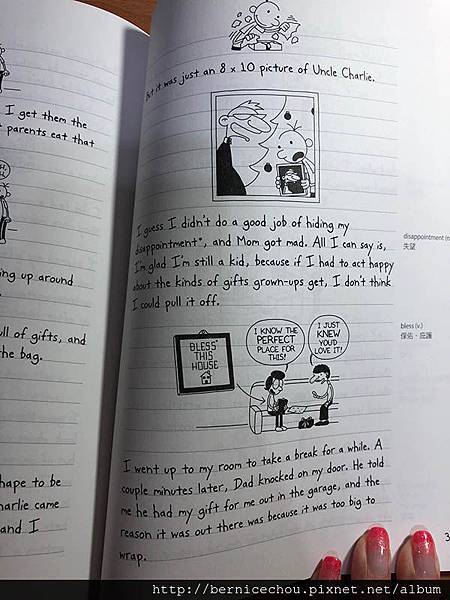 But it was just an 8 x 10 picture of Uncle Charlie.
I get them the
parents eat that
I guess I didn't do a good job of hiding my
disappointment*, and Mom got mad. All I can say is,
I'm glad I'm still a kid, because if I had to act happy
about the kinds of gifts grown-ups get, I don't think
I could pull it off.
disappointment (n
失望
ing up around
ull of gifts, and
the bag.
BLESS*
THIS
HOUSE
I KNOW THE
PERFECT
PLACE FOR
THIS!
I JUST
KNEW
YOU'D
LOVE IT!
bless (v.)
保佑、庇護
I went up to my room to take a break for a while. A
couple minutes later, Dad knocked on my door. He told
me he had my gift for me out in the garage, and the
reason it was out there was because it was too big to
wrap.
hape to be
harlie came
and I
3
http://bernicechou.pixnet.net/album